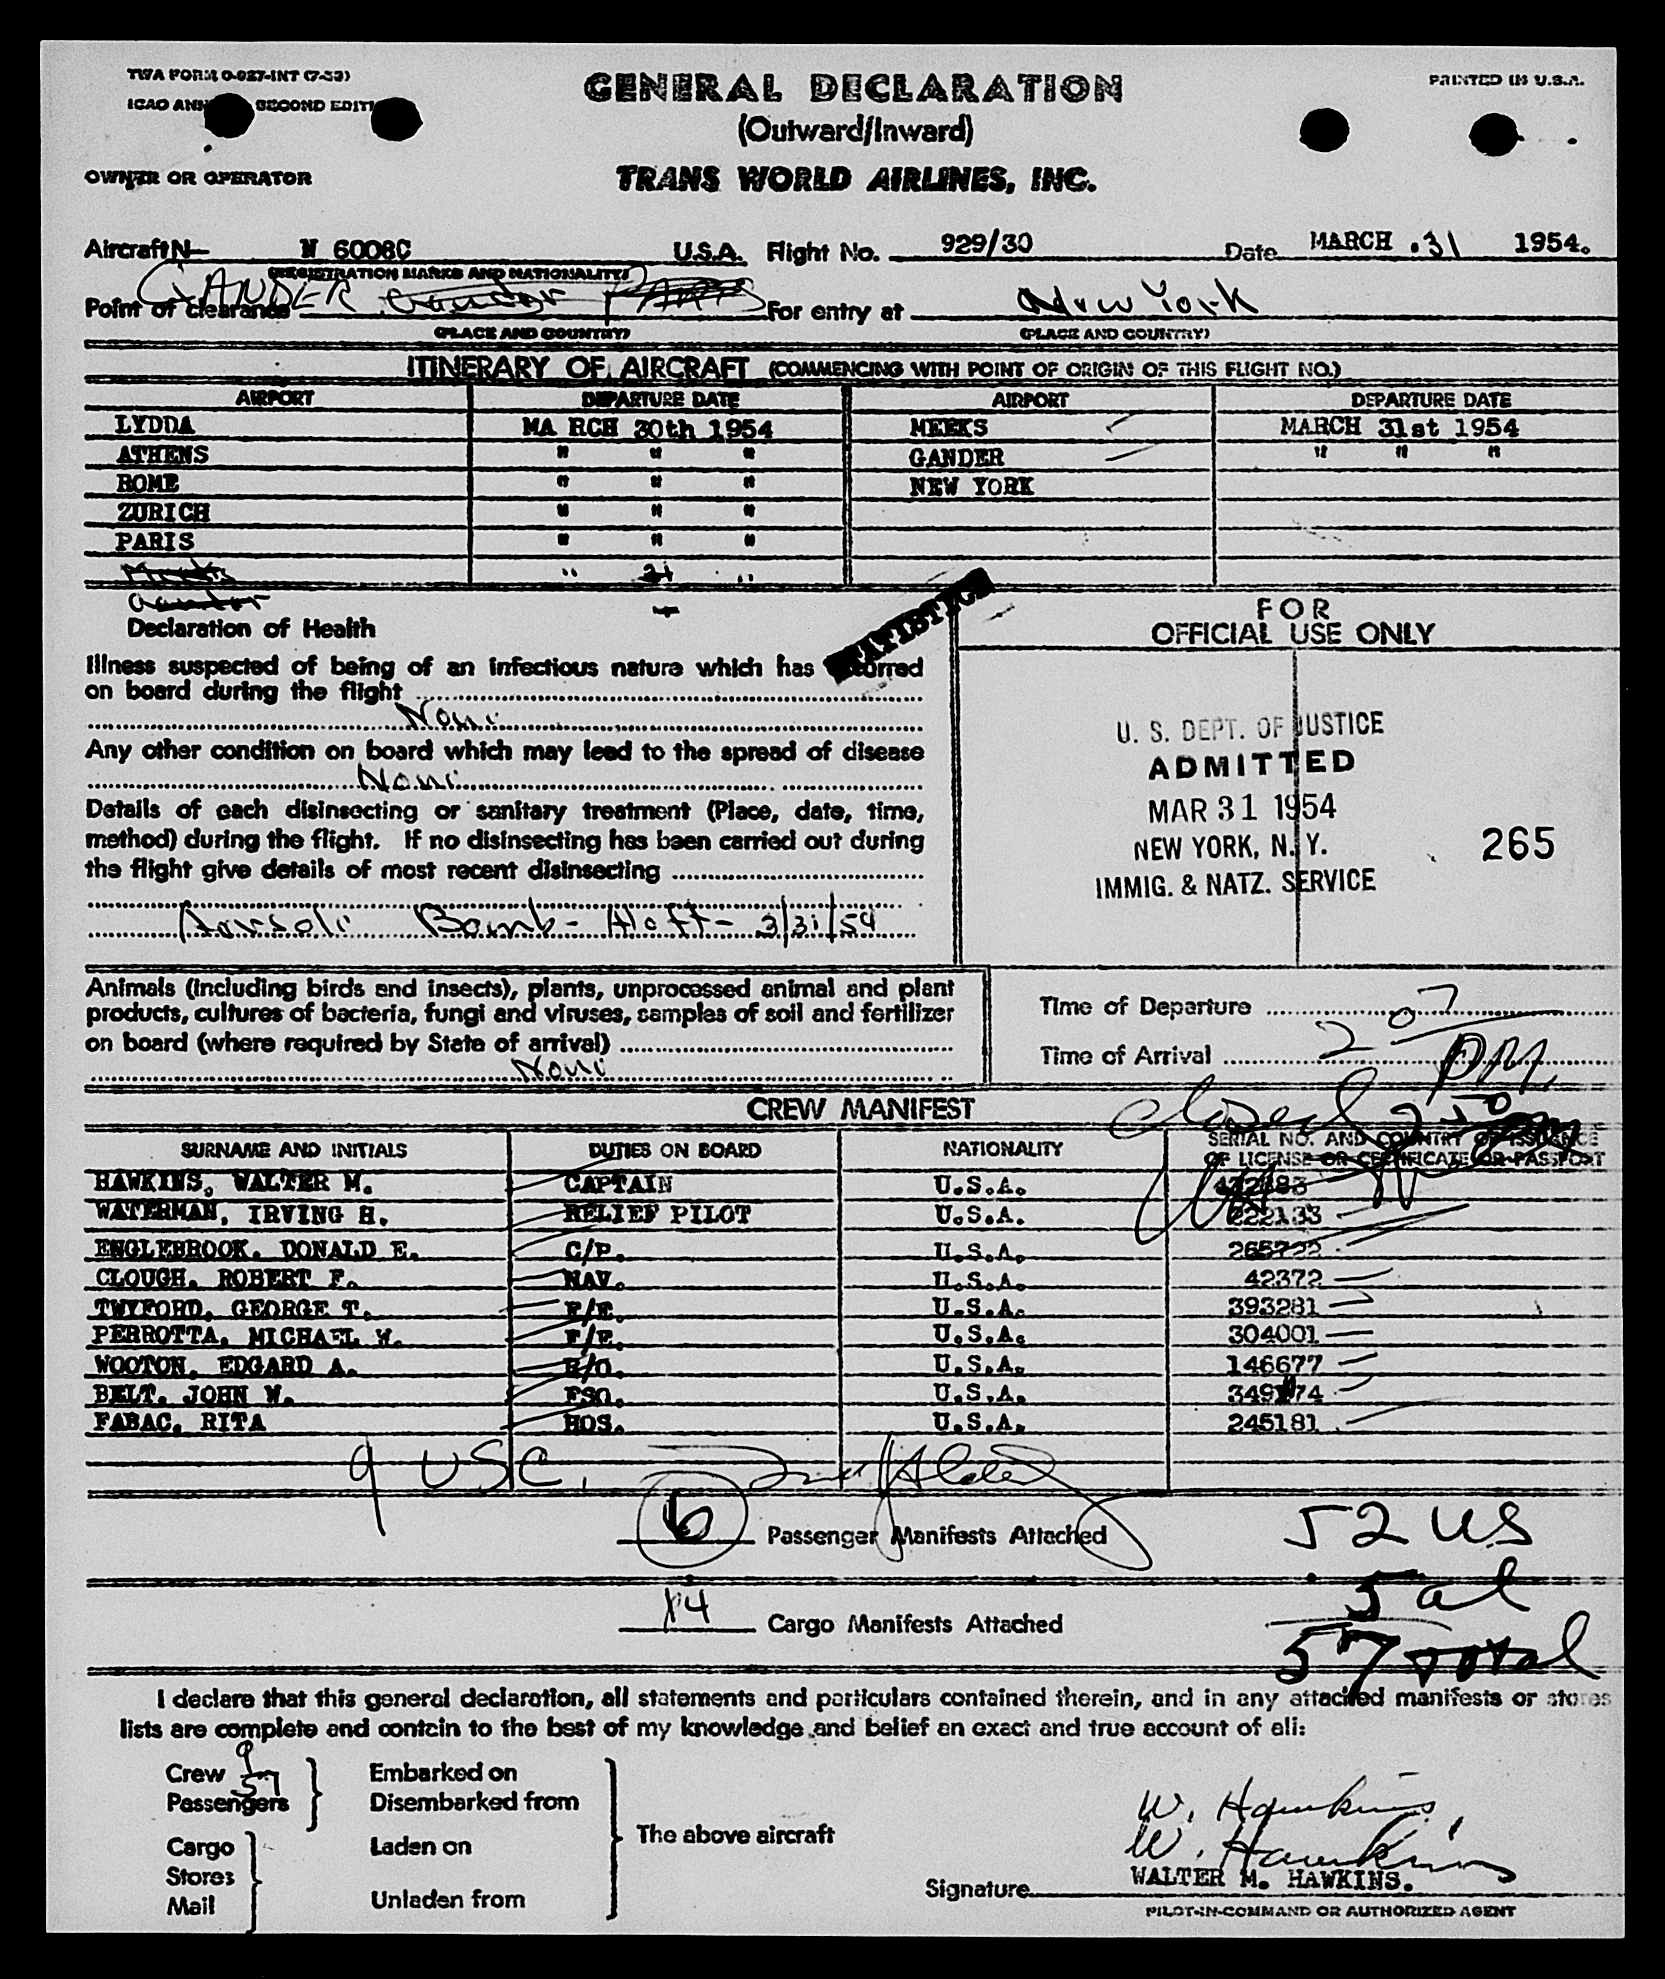 TWA FORM O-927-INT (7-53)
PRINTED IN U.S.A.
ICAO SECOND
GENERAL DECLARATION
(Outward/Inward)
OWNER OR OPERATOR
TRANS WORLD AIRLINES, INC.
Aircraft N— N 6008C U.S.A. Flight No. 929/30 Date MARCH .31 1954.
(REGISTRATION MARKS AND NATIONALITY)
Point of clearance GANDER Gander For entry at New York
(PLACE AND COUNTRY) (PLACE AND COUNTRY)
ITINERARY OF AIRCRAFT (COMMENCING WITH POINT OF ORIGIN OF THIS FLIGHT NO.)
AIRPORT DEPARTURE DATE AIRPORT DEPARTURE DATE
LYDDA MA RCH 30th 1954 MEEKS MARCH 31st 1954
ATHENS " " " GANDER " " "
ROME " " " NEW YORK
ZURICH " " "
PARIS " " "
Meeks " 31 "
Gander "
STATISTICS
Declaration of Health
Illness suspected of being of an infectious nature which has occurred
on board during the flight
None
Any other condition on board which may lead to the spread of disease
None
Details of each disinsecting or sanitary treatment (Place, date, time,
method) during the flight. If no disinsecting has been carried out during
the flight give details of most recent disinsecting
Aerosol Bomb - Aloft - 3/31/54
FOR
OFFICIAL USE ONLY
U. S. DEPT. OF JUSTICE
ADMITTED
MAR 31 1954
NEW YORK, N. Y.
IMMIG. & NATZ. SERVICE
265
Animals (including birds and insects), plants, unprocessed animal and plant
products, cultures of bacteria, fungi and viruses, samples of soil and fertilizer
on board (where required by State of arrival)
None
Time of Departure
Time of Arrival 2 07 PM
closed 2 50
CREW MANIFEST
SURNAME AND INITIALS DUTIES ON BOARD NATIONALITY SERIAL NO. AND COUNTRY OF ISSUANCE
OF LICENSE OR CERTIFICATE OR PASSPORT
HAWKINS, WALTER M. CAPTAIN U.S.A.
WATERMAN, IRVING H. RELIEF PILOT U.S.A. 222133
ENGLEBROOK, DONALD E. C/P. U.S.A. 265722
CLOUGH, ROBERT F. NAV. U.S.A. 42372
TWYFORD, GEORGE T. F/E. U.S.A. 393281
PERROTTA, MICHAEL W. F/E. U.S.A. 304001
WOOTON, EDGARD A. R/O. U.S.A. 146677
BELT, JOHN W. FSO. U.S.A. 349174
FABAC, RITA HOS. U.S.A. 245181
9 USC.
6 Passenger Manifests Attached
52 US
5 al
57 total
14 Cargo Manifests Attached
I declare that this general declaration, all statements and particulars contained therein, and in any attached manifests or stores
lists are complete and contain to the best of my knowledge and belief an exact and true account of all:
Crew 9 Embarked on
Passengers 57 Disembarked from
The above aircraft
Cargo Laden on
Stores
Mail Unladen from
W. Hawkins
W. Hawkins
WALTER M. HAWKINS.
Signature
PILOT-IN-COMMAND OR AUTHORIZED AGENT